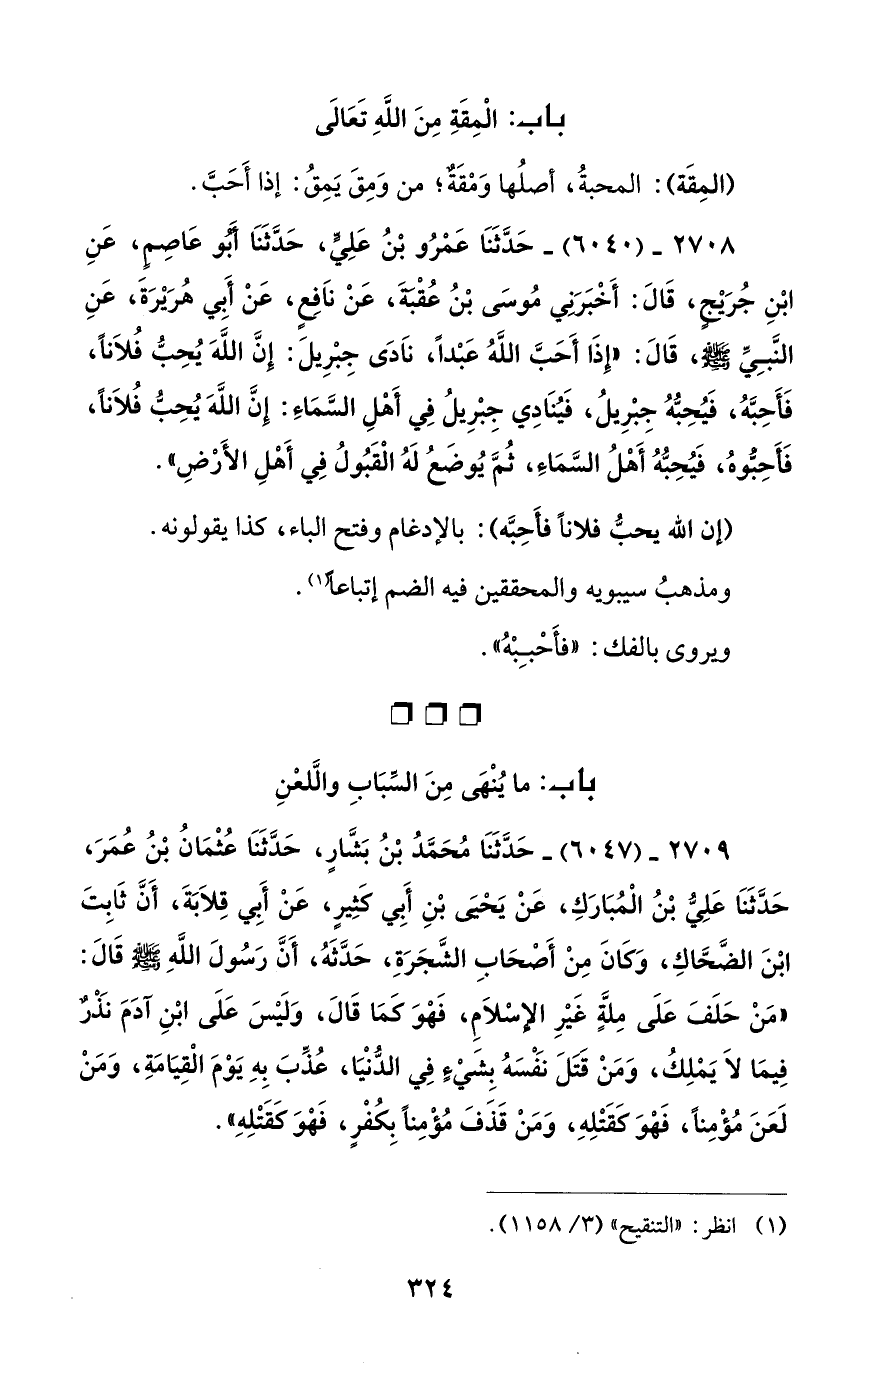 باب: الْمِقَةِ مِنَ اللَّهِ تَعَالَى
(المِقَة): المحبةُ، أصلُها وَمْقَةٌ؛ من وَمِقَ يَمِقُ: إذا أَحَبَّ.
٢٧٠٨ ـ (٦٠٤٠) ـ حَدَّثَنَا عَمْرُو بْنُ عَلِيٍّ، حَدَّثَنَا أَبُو عَاصِمٍ، عَنِ
ابْنِ جُرَيْجٍ، قَالَ: أَخْبَرَنِي مُوسَى بْنُ عُقْبَةَ، عَنْ نَافِعٍ، عَنْ أَبِي هُرَيْرَةَ، عَنِ
النَّبِيِّ ﷺ، قَالَ: «إِذَا أَحَبَّ اللَّهُ عَبْداً، نَادَى جِبْرِيلَ: إِنَّ اللَّهَ يُحِبُّ فُلاَناً،
فَأَحِبَّهُ، فَيُحِبُّهُ جِبْرِيلُ، فَيُنَادِي جِبْرِيلُ فِي أَهْلِ السَّمَاءِ: إِنَّ اللَّهَ يُحِبُّ فُلاَناً،
فَأَحِبُّوهُ، فَيُحِبُّهُ أَهْلُ السَّمَاءِ، ثُمَّ يُوضَعُ لَهُ الْقَبُولُ فِي أَهْلِ الأَرْضِ».
(إن الله يحبُّ فلاناً فأَحِبَّه): بالإدغام وفتح الباء، كذا يقولونه.
ومذهبُ سيبويه والمحققين فيه الضم إتباعاً(١).
ويروى بالفك: «فأَحْبِبْهُ».
❒ ❒ ❒
باب: ما يُنْهَى مِنَ السِّبَابِ واللَّعْنِ
٢٧٠٩ ـ (٦٠٤٧) ـ حَدَّثَنَا مُحَمَّدُ بْنُ بَشَّارٍ، حَدَّثَنَا عُثْمَانُ بْنُ عُمَرَ،
حَدَّثَنَا عَلِيُّ بْنُ الْمُبَارَكِ، عَنْ يَحْيَى بْنِ أَبِي كَثِيرٍ، عَنْ أَبِي قِلاَبَةَ، أَنَّ ثَابِتَ
ابْنَ الضَّحَّاكِ، وَكَانَ مِنْ أَصْحَابِ الشَّجَرَةِ، حَدَّثَهُ، أَنَّ رَسُولَ اللَّهِ ﷺ قَالَ:
«مَنْ حَلَفَ عَلَى مِلَّةٍ غَيْرِ الإِسْلاَمِ، فَهْوَ كَمَا قَالَ، وَلَيْسَ عَلَى ابْنِ آدَمَ نَذْرٌ
فِيمَا لاَ يَمْلِكُ، وَمَنْ قَتَلَ نَفْسَهُ بِشَيْءٍ فِي الدُّنْيَا، عُذِّبَ بِهِ يَوْمَ الْقِيَامَةِ، وَمَنْ
لَعَنَ مُؤْمِناً، فَهْوَ كَقَتْلِهِ، وَمَنْ قَذَفَ مُؤْمِناً بِكُفْرٍ، فَهْوَ كَقَتْلِهِ».
(١) انظر: «التنقيح» (٣/ ١١٥٨).
٣٢٤